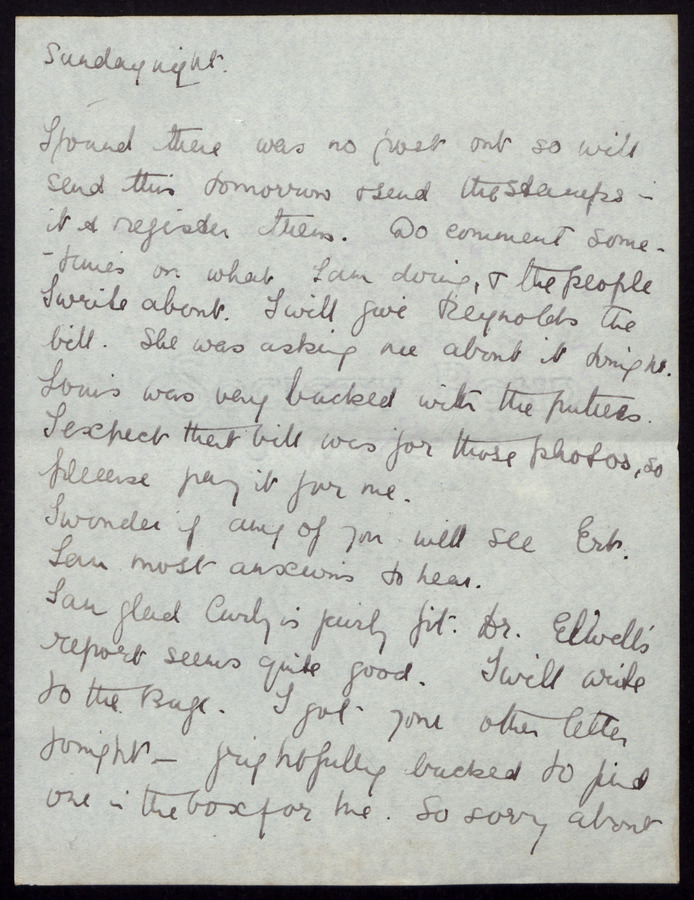 Sunday night.
I found there was no post out so will
send this tomorrow & send the stamps in
it & register them. Do comment some-
-times on what I am doing, & the people
I write about. I will give Reynolds the
bill. She was asking me about it tonight.
Louis was very bucked with the
I expect that bill was for those photos, so
please pay it for me.
I wonder if any of you will see Erb.
I am most anxious to hear.
I am glad Curly is fairly fit. Dr. Elwell's
report seems quite good. I will write
to the I got your other letter
tonight – frightfully bucked to find
one in the box for me. So sorry about